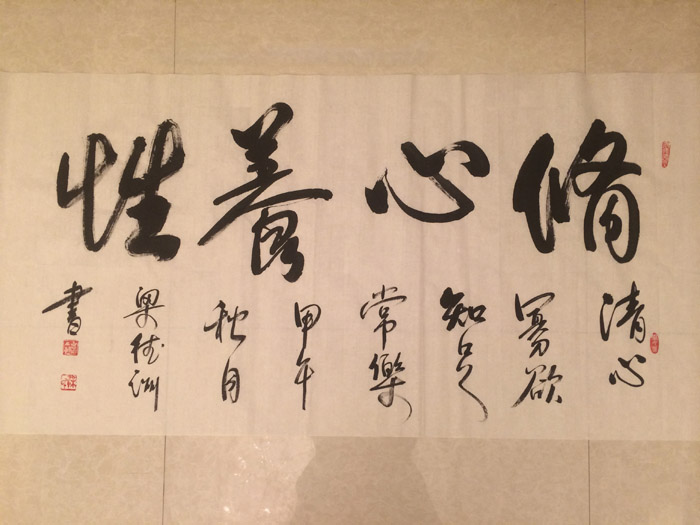 脩心養性
清心
寡欲
知足
常樂
甲午
秋月
梁德洲
書